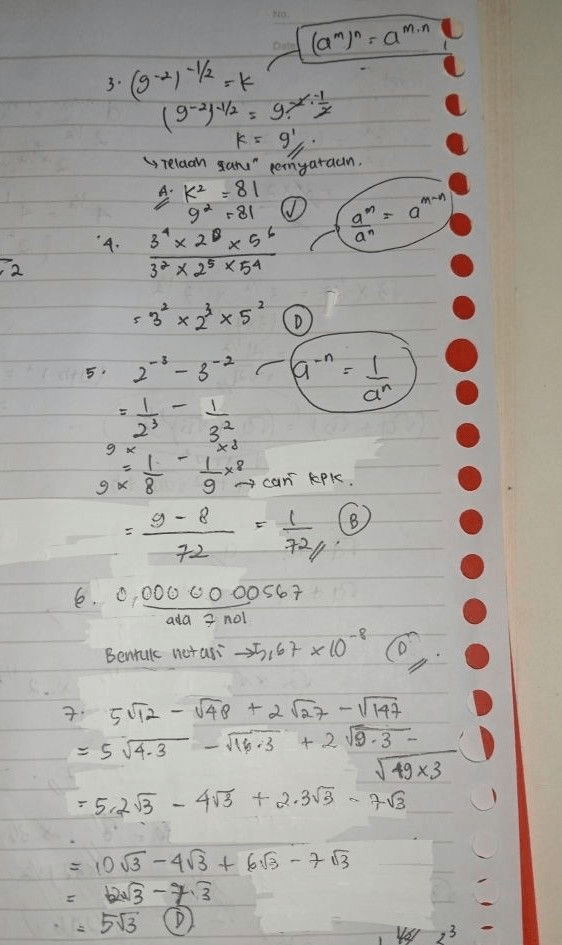 No.
Date
(a^m)^n = a^{m.n}
3. (9^{-2})^{-1/2} = k
(9^{-2})^{-1/2} = 9^{-2 . -1/2}
k = 9^1.
↳ telaah satu" pernyataan.
A. k² = 81
9² = 81 ✓
4. 3^4 × 2^8 × 5^6
3² × 2^5 × 5^4
a^m/a^n = a^{m-n}
= 3² × 2³ × 5² D
5. 2^{-3} - 3^{-2}
a^{-n} = 1/a^n
= 1/2³ - 1/3²
9 × ×8
= 1/8 - 1/9 ×8
9 × → cari KPK.
= 9 - 8 / 72 = 1/72 B
6. 0,00000000567
ada 7 nol
Bentuk notasi → 5,67 × 10^{-8} D
7. 5√12 - √48 + 2√27 - √147
= 5√4.3 - √16.3 + 2√9.3 -
√49×3
= 5.2√3 - 4√3 + 2.3√3 - 7√3
= 10√3 - 4√3 + 6√3 - 7√3
= 12√3 - 7√3
= 5√3 D
2³